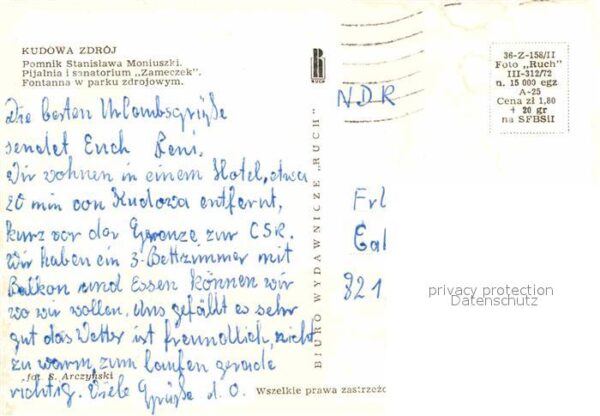 KUDOWA ZDRÓJ
Pomnik Stanisława Moniuszki.
Pijalnia i sanatorium „Zameczek".
Fontanna w parku zdrojowym.
Die besten Urlaubsgrüße
sendet Euch Reni.
Wir wohnen in einem Hotel, etwa
20 min von Kudowa entfernt,
kurz vor der Grenze zur ČSR.
Wir haben ein 3-Bettzimmer mit
Balkon und Essen können wir
wo wir wollen. Uns gefällt es sehr
gut das Wetter ist freundlich, nicht
zu warm, zum laufen gerade
fot. S. Arczyński
richtig. Viele Grüße d. O.
Wszelkie prawa zastrzeżo
BIURO WYDAWNICZE „RUCH"
RUCH
NDR
Frl
Gal
821
36-Z-158/II
Foto „Ruch"
III-312/72
n. 15 000 egz
A-25
Cena zł 1,80
+ 20 gr
na SFBSiI
privacy protection
Datenschutz